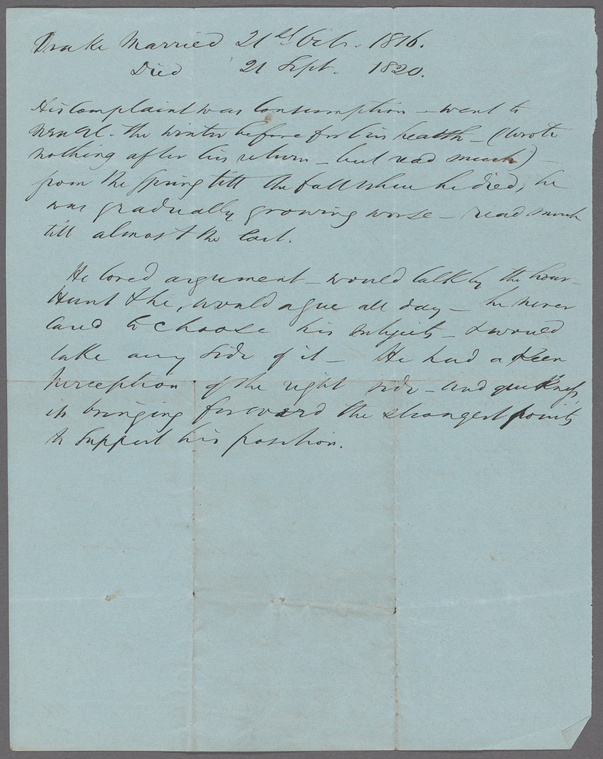 Drake Married 21st Oct. 1816.
Died 21 Sept. 1820.
His complaint was consumption - went to
the winter before for his health - (wrote
nothing after his return - but read much) -
from the Spring till the fall when he died, he
was gradually growing worse - read much
till almost the last.
He loved argument - would talk by the hour -
Hunt & he, would argue all day - he never
cared to choose his subjects - & would
take any side of it - He had a keen
perception of the right side - and quickness
in bringing forward the strongest points
to support his position.